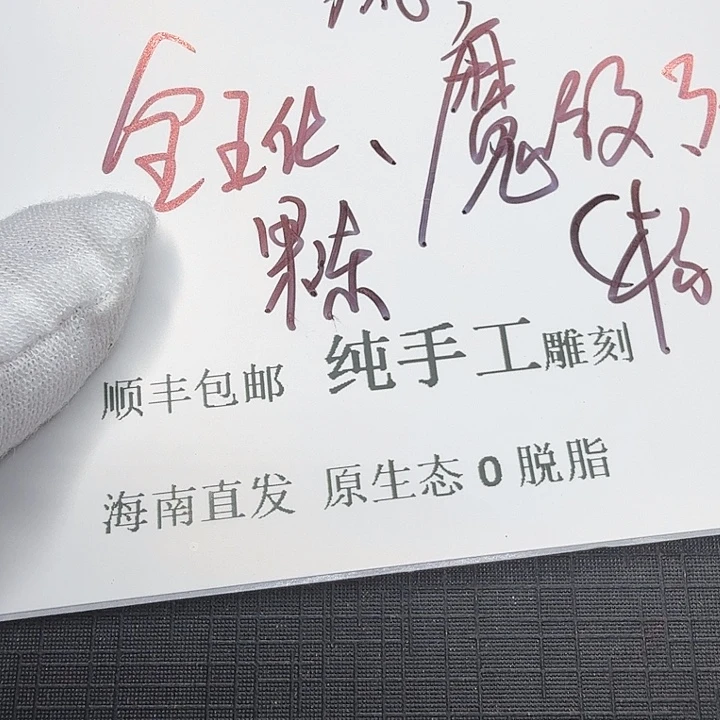 全玉化、魔级
果冻
顺丰包邮 纯手工雕刻
海南直发 原生态0脱脂